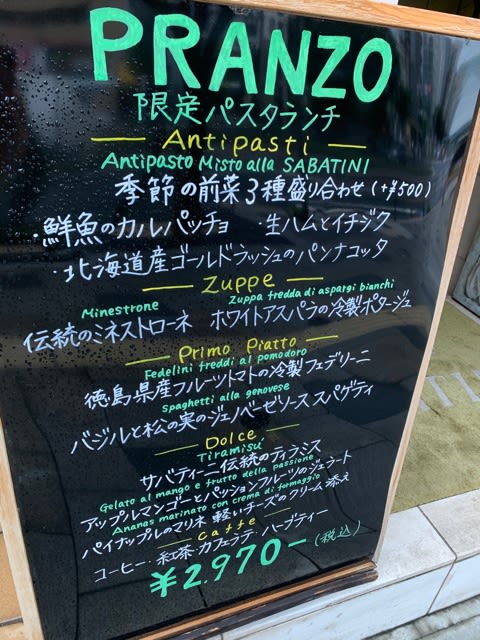 PRANZO
限定パスタランチ
Antipasti
Antipasto Misto alla SABATINI
季節の前菜3種盛り合わせ(+¥500)
・鮮魚のカルパッチョ ・生ハムとイチジク
・北海道産ゴールドラッシュのパンナコッタ
Zuppe
Minestrone Zuppa fredda di aspargi bianchi
伝統のミネストローネ ホワイトアスパラの冷製ポタージュ
Primo Piatto
Fedelini freddi al pomodoro
徳島県産フルーツトマトの冷製フェデリーニ
Spaghetti alla genovese
バジルと松の実のジェノベーゼソース スパゲティ
Dolce
Tiramisú
サバティーニ伝統のティラミス
Gelato al mango e frutto della passione
アップルマンゴーとパッションフルーツのジェラート
Ananas marinato con crema di formaggio
パイナップルのマリネ 軽いチーズのクリーム添え
Caffe
コーヒー・紅茶・カフェラテ・ハーブティー
¥2.970-(税込)